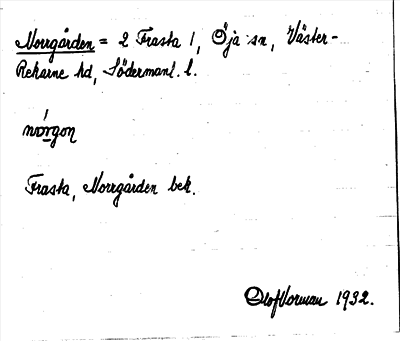 Norrgården = 2 Frasta 1, Öja sn, Väster-
Rekarne hd, Södermanl. l.
nórgon
Frasta, Norrgården bek.
Olof Vorman 1932.